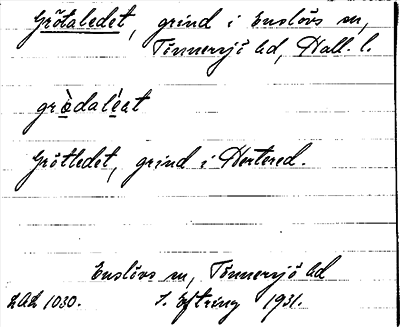 Grötaledet, grind i Enslövs sn,
Tönnersjö hd, Hall. l.
grø̀daléat
Grötledet, grind i Hertered.
Enslövs sn, Tönnersjö hd
LAL 1030. S. Eftring 1931.